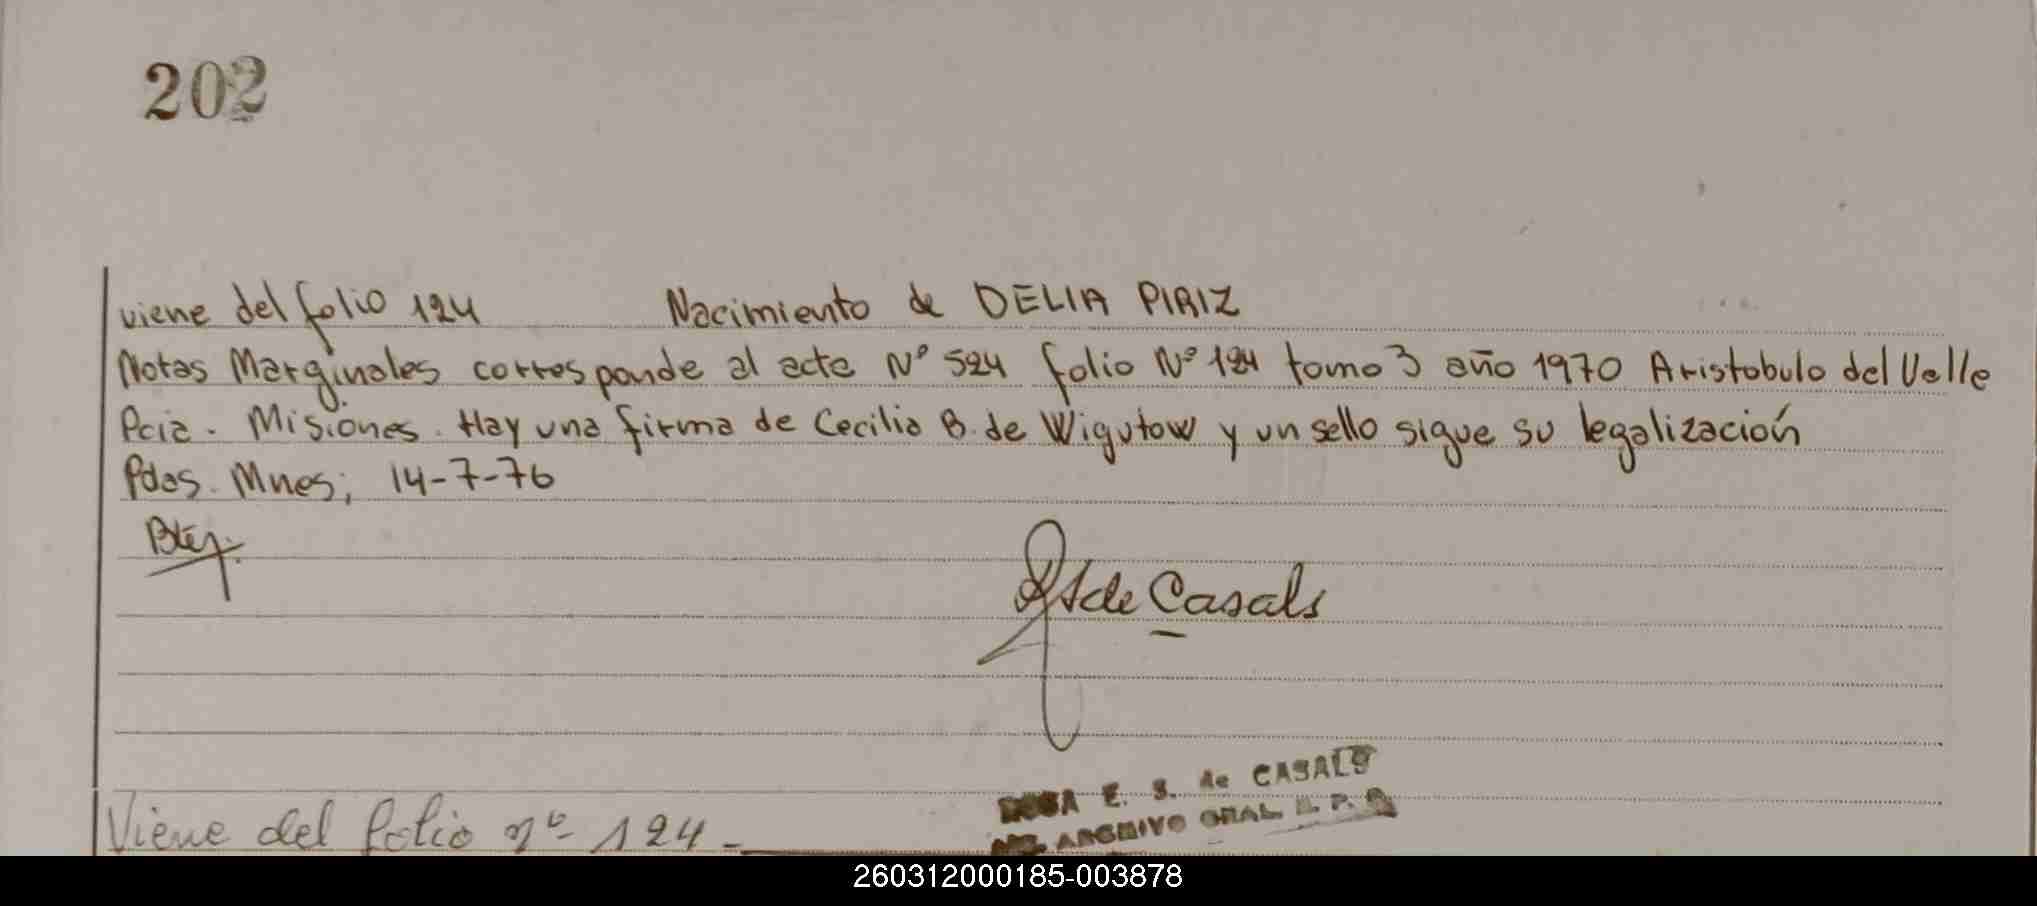 202
viene del folio 124 Nacimiento de DELIA PIRIZ
Notas Marginales corresponde al acta Nº 524 folio Nº 124 tomo 3 año 1970 Aristobulo del Valle
Pcia. Misiones. Hay una firma de Cecilia B. de Wigutow y un sello sigue su legalización
Pdas. Mnes; 14-7-76
de Casals
ROSA E. S. de CASALS
ARCHIVO GRAL. R. P. P.
Viene del folio nº 124.-
260312000185-003878